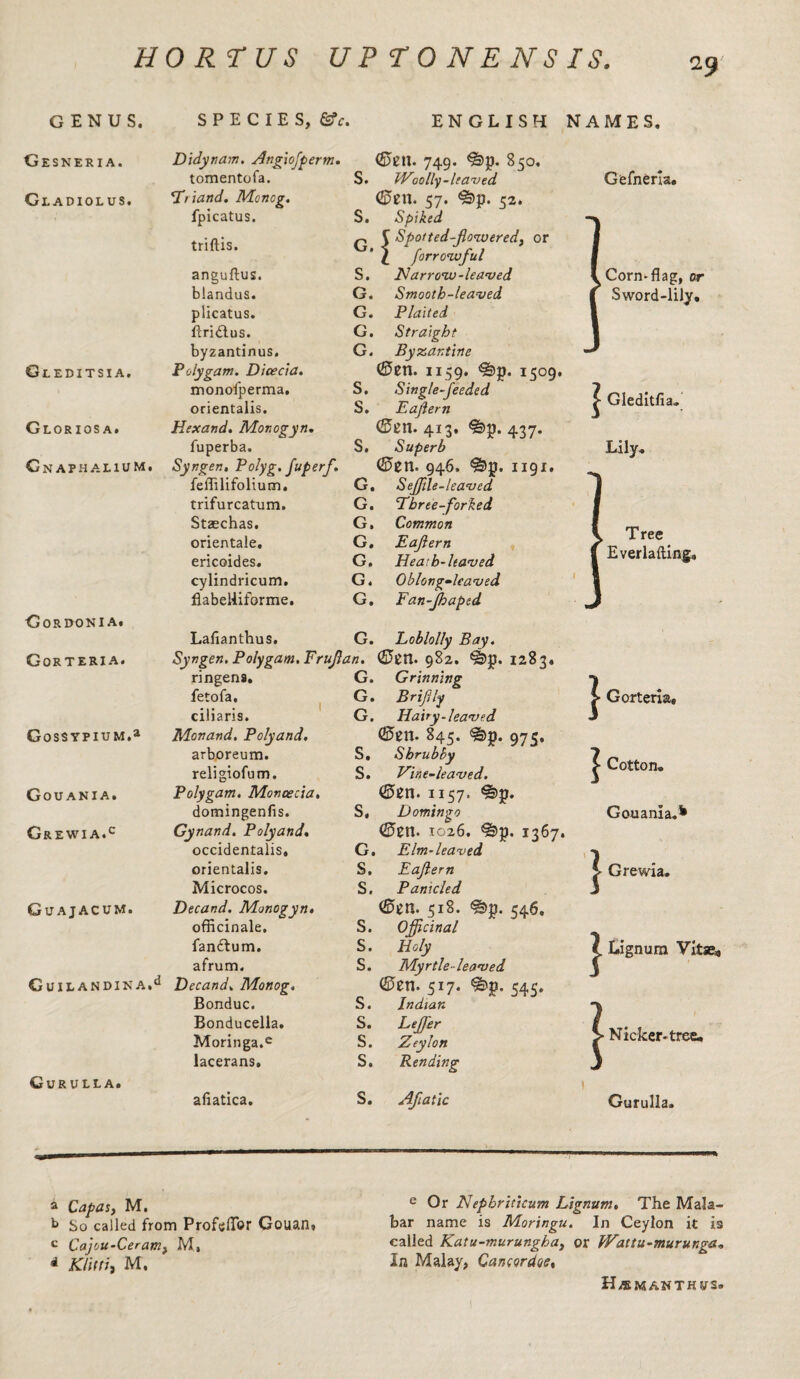 HORTUS UPTONENSIS. 29
GENUS. SPECIES, &c. ENGLISH NAMES.
GESNERIA. Didynam. Angioſperm. Gen. 749. Sp. 850.
tomentoſa. S. Woolly-leaved Geſneria.
GLADIOLUS. Triand. Monog. Gen. 57. Sp. 52.
ſpicatus. S. Spiked
triſtis. G. { Spotted-flowered, or
ſorrowful
anguſtus. S. Narrow-leaved } Corn-flag, or
blandus. G. Smooth-leaved Sword-lily.
plicatus. G. Plaited
ſtrictus. G. Straight
byzantinus. G. Byzantine
GLEDITSIA. Polygam. Diœcia. Gen. 1159. Sp. 1509.
monoſperma. S. Single-ſeeded } Gleditſia.
orientalis. S. Eaſtern
GLORIOSA. Hexand. Monogyn. Gen. 413. Sp. 437.
ſuperba. S. Superb Lily.
GNAPHALIUM. Syngen. Polyg. ſuperf. Gen. 946. Sp. 1191.
ſeſſilifolium. G. Seſſile-leaved
trifurcatum. G. Three-forked
Stæchas. G. Common
orientale. G. Eaſtern } Tree
ericoides. G. Heath-leaved Everlaſting.
cylindricum. G. Oblong-leaved
flabelliforme. G. Fan-ſhaped
GORDONIA.
Laſianthus. G. Loblolly Bay.
GORTERIA. Syngen. Polygam. Fruſtan. Gen. 982. Sp. 1283.
ringens. G. Grinning
ſetoſa. G. Briſtly } Gorteria.
ciliaris. G. Hairy-leaved
GOSSYPIUM.ᵃ Monand. Polyand. Gen. 845. Sp. 975.
arboreum. S. Shrubby } Cotton.
religioſum. S. Vine-leaved.
GOUANIA. Polygam. Monœcia. Gen. 1157. Sp.
domingenſis. S. Domingo Gouania.ᵇ
GREWIA.ᶜ Gynand. Polyand. Gen. 1026. Sp. 1367.
occidentalis. G. Elm-leaved
orientalis. S. Eaſtern } Grewia.
Microcos. S. Panicled
GUAJACUM. Decand. Monogyn. Gen. 518. Sp. 546.
officinale. S. Officinal
ſanctum. S. Holy } Lignum Vitæ.
afrum. S. Myrtle-leaved
GUILANDINA.ᵈ Decand. Monog. Gen. 517. Sp. 545.
Bonduc. S. Indian
Bonducella. S. Leſſer
Moringa.ᵉ S. Zeylon } Nicker-tree.
lacerans. S. Rending
GURULLA.
aſiatica. S. Aſiatic Gurulla.
ᵃ Capas, M.
ᵇ So called from Profeſſor Gouan.
ᶜ Cajou-Ceram, M.
ᵈ Klitti, M.
ᵉ Or Nephriticum Lignum. The Mala-
bar name is Moringu. In Ceylon it is
called Katu-murungha, or Wattu-murunga.
In Malay, Cancordoe.
HÆMANTHUS.